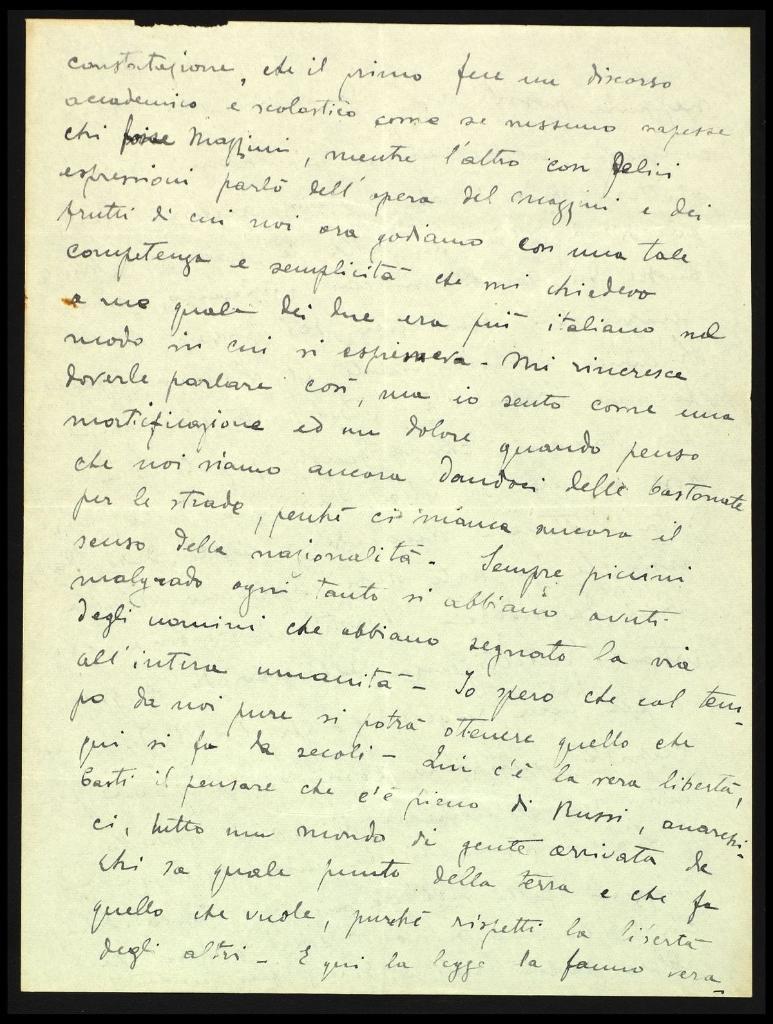 constatazione, che il primo fece un discorso
accademico e scolastico come se nessuno sapesse
chi fosse Mazzini, mentre l'altro con felici
espressioni parlò dell'opera del Mazzini e dei
frutti di cui noi ora godiamo con una tale
competenza e semplicità che mi chiedevo
a me quale dei due era più italiano nel
modo in cui si esprimeva - Mi rincresce
doverle parlare così, ma io sento come una
mortificazione ed un dolore quando penso
che noi siamo ancora dandoci delle bastonate
per le strade, perché ci manca ancora il
senso della nazionalità - Sempre piccini
malgrado ogni tanto si abbiano avuti
degli uomini che abbiano segnato la via
all'intera umanità - Io spero che col tem-
po da noi pure si potrà ottenere quello che
qui si fa da secoli - Qui c'è la vera libertà,
basti il pensare che c'è pieno di Russi, anarchi-
ci, tutto un mondo di gente arrivata da
chi sa quale punto della terra e che fa
quello che vuole, purché rispetti la libertà
degli altri - E qui la legge la fanno vera-